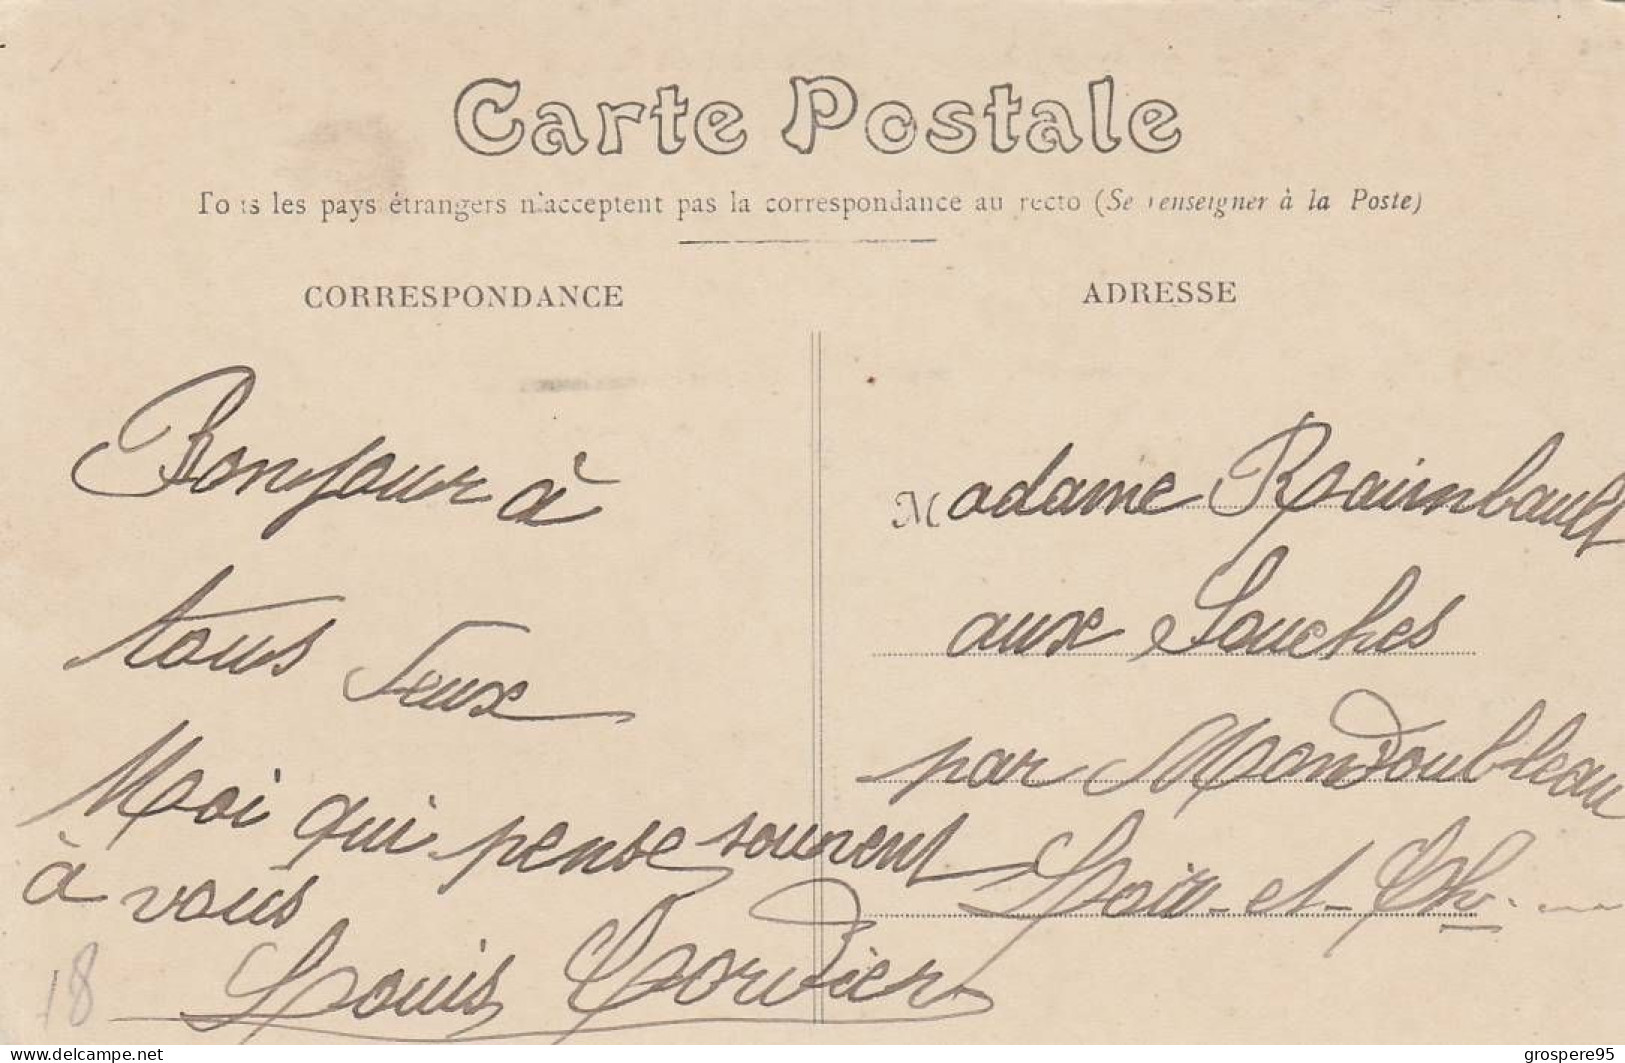 Carte Postale
Tous les pays étrangers n'acceptent pas la correspondance au recto (Se renseigner à la Poste)
CORRESPONDANCE
Bonjour à
tous
Moi qui pense souvent
à vous
Louis Cordier
18
ADRESSE
Madame Raimbault
aux Souches
par Mondoubleau
Loir-et-Ch.
www.delcampe.net
grospere95